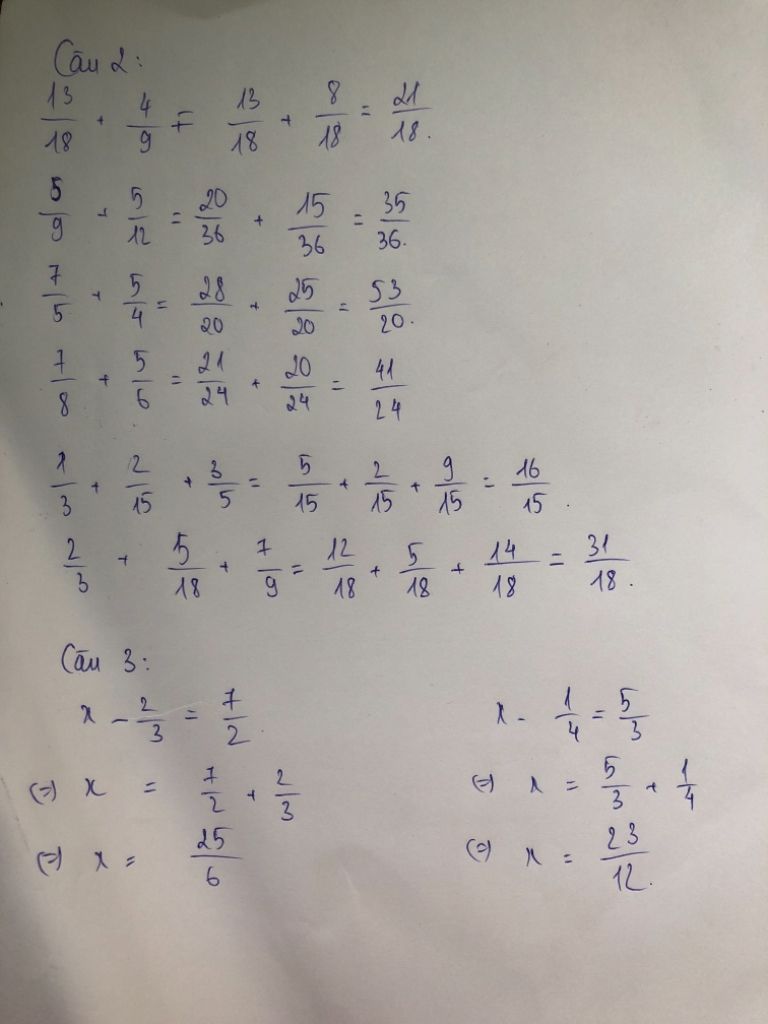 Câu 2:
13/18 + 4/9 = 13/18 + 8/18 = 21/18.
5/9 + 5/12 = 20/36 + 15/36 = 35/36.
7/5 + 5/4 = 28/20 + 25/20 = 53/20.
7/8 + 5/6 = 21/24 + 20/24 = 41/24
1/3 + 2/15 + 3/5 = 5/15 + 2/15 + 9/15 = 16/15.
2/3 + 5/18 + 7/9 = 12/18 + 5/18 + 14/18 = 31/18.
Câu 3:
x - 2/3 = 7/2
(=) x = 7/2 + 2/3
(=) x = 25/6
x - 1/4 = 5/3
(=) x = 5/3 + 1/4
(=) x = 23/12.